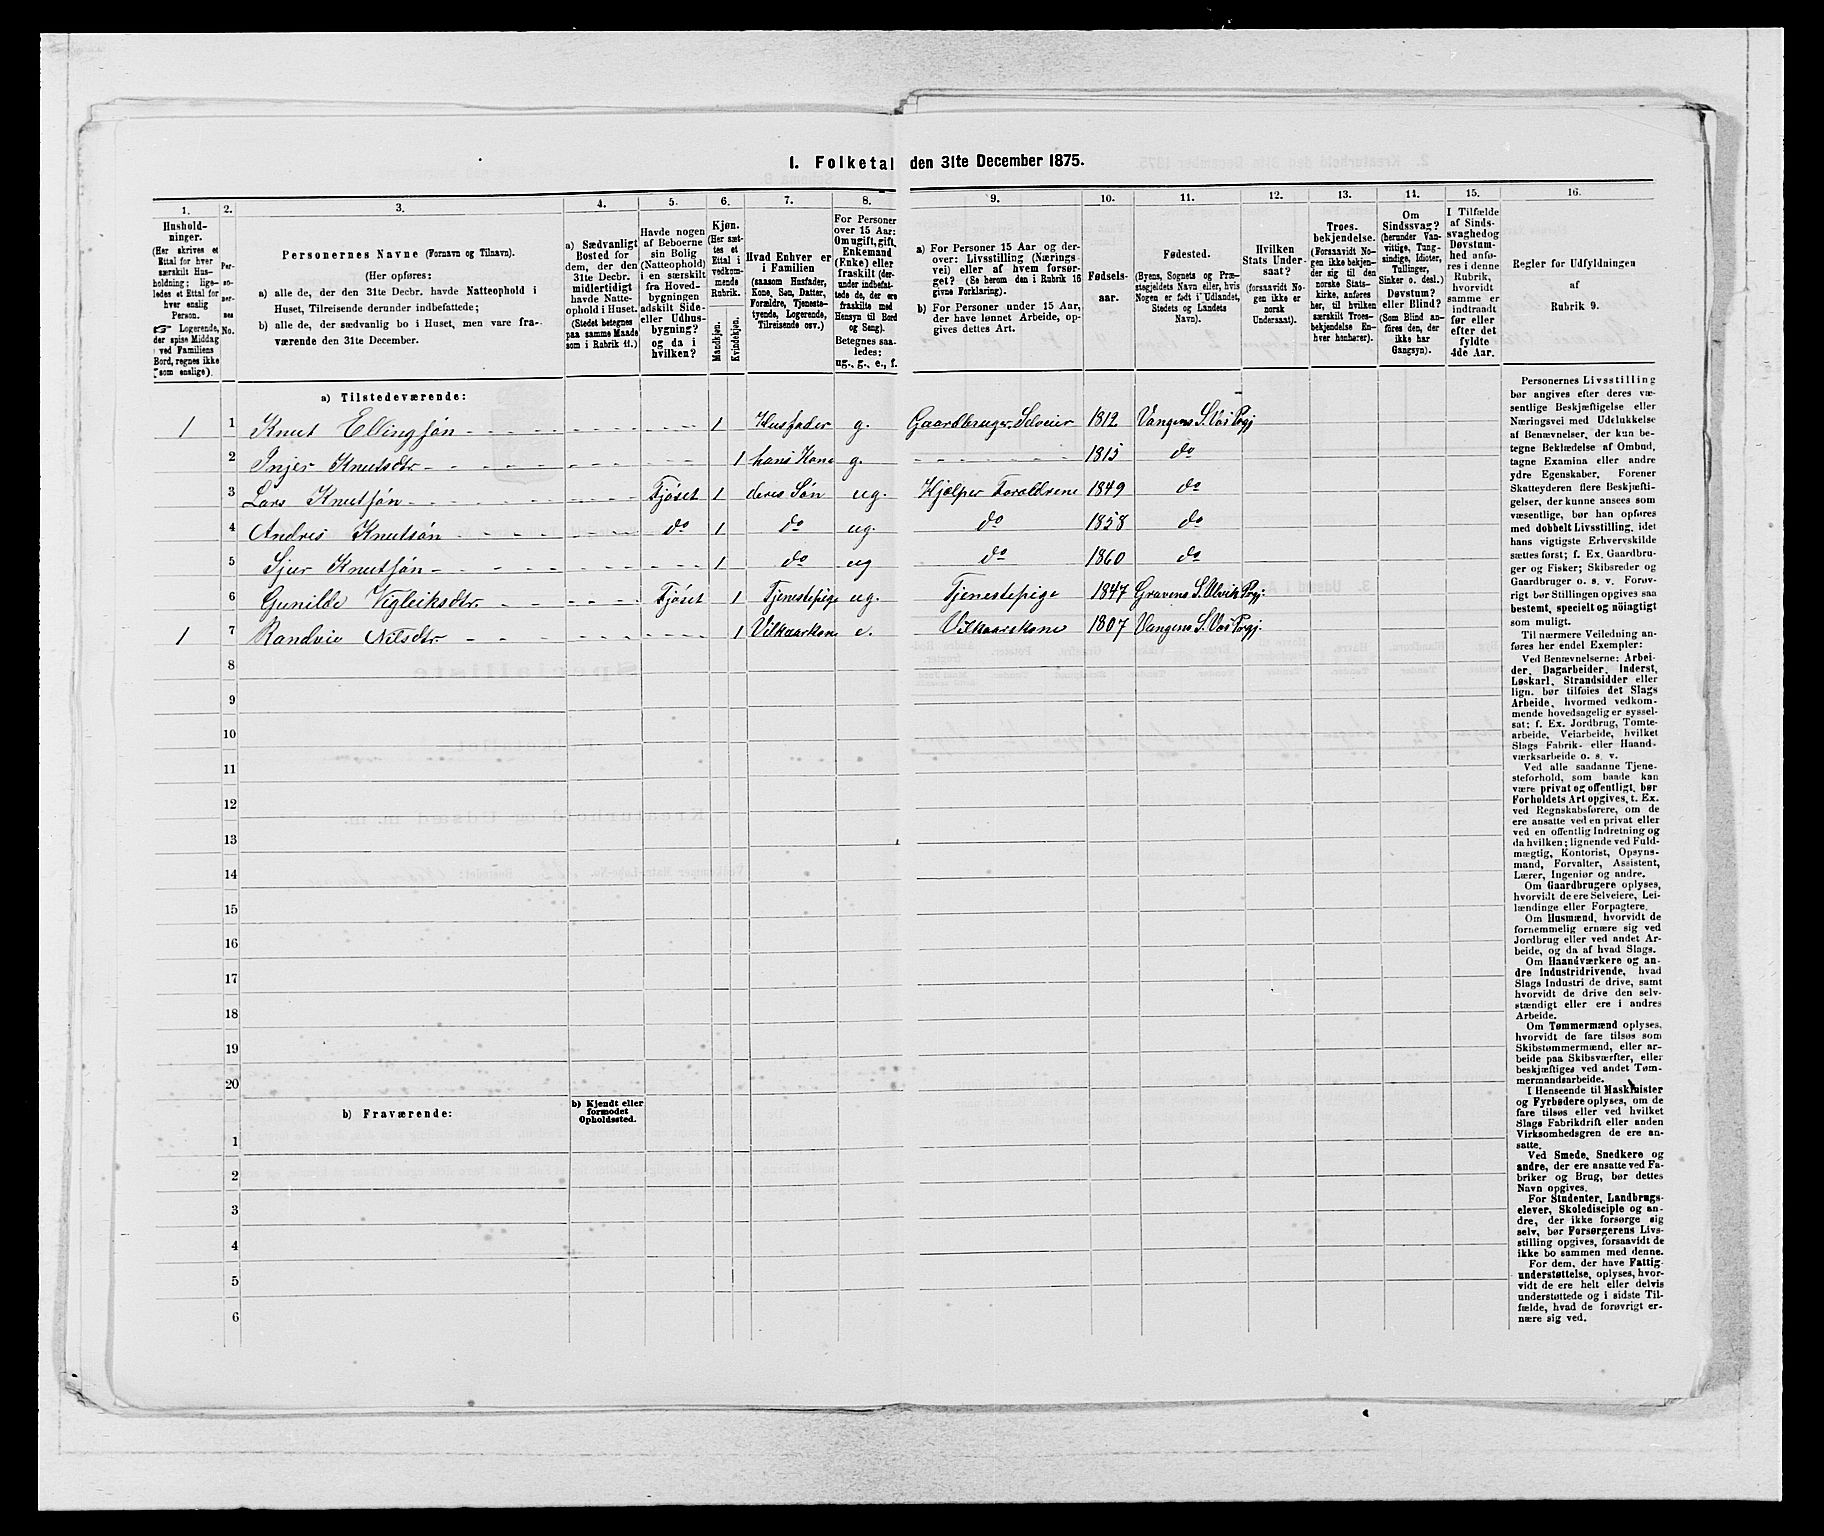 1. Folketal den 31te December 1875.
1. 2. 3. 4. 5. 6. 7. 8. 9. 10. 11. 12. 13. 14. 15. 16.
Husholdninger.
(Her skrives et
Ettal for hver
særskilt Husholdning;
ligeledes et Ettal for
hver enslig
Person.
☞ Logerende,
der spise Middag
ved Familiens
Bord, regnes ikke
som enslige).
Personernes No.
Personernes Navne (Fornavn og Tilnavn).
(Her opføres:
a) alle de, der den 31te Decbr. havde Natteophold i
Huset, Tilreisende derunder indbefattede;
b) alle de, der sædvanlig bo i Huset, men vare fraværende
den 31te December.
a) Sædvanligt
Bosted for
dem, der den
31te Decbr.
midlertidigt
havde Natteophold
i Huset.
(Stedet betegnes
paa samme Maade
som i Rubrik 11.)
Havde nogen
af Beboerne
sin Bolig
(Natteophold)
i en særskilt
fra Hovedbygningen
adskilt Side-
eller Udhusbygning?
og da i
hvilken?
Kjøn.
(Her sættes
et
Ettal i
vedkommende
Rubrik.
Mandkjøn.
Kvindekjøn.
Hvad Enhver er
i Familien
(saasom Husfader,
Kone, Søn, Datter,
Forældre, Tjenestetyende,
Logerende,
Tilreisende osv.)
For Personer
over 15 Aar:
Om ugift, gift,
Enkemand
(Enke) eller
fraskilt (derunder
indbefattede
de, der ere
fraskilte med
Hensyn til Bord
og Seng).
Betegnes saaledes:
ug., g., e., f.
a) For Personer 15 Aar og derover:
Livsstilling (Næringsvei)
eller af hvem forsørget?
(Se herom den i Rubrik 16
givne Forklaring).
b) For Personer under 15 Aar,
der have lønnet Arbeide, opgives
dettes Art.
Fødselsaar.
Fødested.
(Byens, Sognets og Præstegjeldets
Navn eller, hvis
Nogen er født i Udlandet,
Stedets og Landets
Navn).
Hvilken
Stats Undersaat?
(forsaavidt Nogen
ikke er
norsk
Undersaat).
Troesbekjendelse.
(Forsaavidt Nogen
ikke bekjender
sig til den
norske Statskirke,
anføres
her, til hvilken
særskilt Troesbekjendelse
Enhver
henhører).
Om
Sindssvag?
(herunder Vanvittige,
Tungsindige,
Idioter,
Tullinger,
Sinker o. desl.)
Døvstum?
eller Blind?
(Som Blind anføres
den, der
ikke har
Gangsyn).
I Tilfælde
af Sindssvaghed
og
Døvstumhed
anføres
i denne
Rubrik,
hvorvidt
samme er
indtraadt
før eller
efter det
fyldte
4de Aar.
Regler for Udfyldningen
af
Rubrik 9.
a) Tilstedeværende:
1 1 Knut Ellingsøn 1 Husfader g. Gaardbruger, Selveier 1812 Vangens S. Vos Prgj
2 Injer Knutsdtr 1 hans Kone g. 1815 do
3 Lars Knutsøn Fjøset 1 deres Søn ug. Hjælper Forældrene 1849 do
4 Andris Knutsøn do 1 do ug. do 1858 do
5 Sjur Knutsøn 1 do ug do 1860 do
6 Gunilde Vigleiksdtr. Fjøset 1 Tjenestepige ug. Tjenestepige 1847 Gravens S. Ulvik Prgj:
1 7 Randvie Nilsdtr 1 Vilkaarkone e. Vilkaarskone 1807 Vangens S. Vos Prgj.
8
9
10
11
12
13
14
15
16
17
18
19
20
b) Fraværende:
b) Kjendt eller
formodet
Opholdssted.
1
2
3
4
5
6
Personernes Livsstilling
bør angives efter deres væsentlige
Beskjæftigelse eller
Næringsvei med Udelukkelse
af Benævnelser, der kun betegne
Beklædelse af Ombud,
tagne Examina eller andre
ydre Egenskaber. Forener
Skatteyderen flere Beskjæftigelser,
der kunne ansees som
væsentlige, bør han opføres
med dobbelt Livsstilling, idet
hans vigtigste Erhvervskilde
sættes først; f. Ex. Gaardbruger
og Fisker; Skibsreder og
Gaardbruger o. s. v. Forøvrigt
bør Stillingen opgives saa
bestemt, specielt og nöiagtigt
som muligt.
Til nærmere Veiledning anføres
her endel Exempler:
Ved Benævnelserne: Arbeider,
Dagarbeider, Inderst,
Løskarl, Strandsidder eller
lign. bør tilføies det Slags
Arbeide, hvormed vedkommende
hovedsagelig er sysselsat;
f. Ex. Jordbrug, Tomtearbeide,
Veiarbeide, hvilket
Slags Fabrik- eller Haandværksarbeide
o. s. v.
Ved alle saadanne Tjenesteforhold,
som baade kan
være privat og offentligt, bør
Forholdets Art opgives, t. Ex.
ved Regnskabsførere, om de
ere ansatte ved en privat eller
ved en offentlig Indretning og
da hvilken; lignende ved Fuldmægtig,
Kontorist, Opsynsmand,
Forvalter, Assistent,
Lærer, Ingeniør og andre.
Om Gaardbrugere oplyses,
hvorvidt de ere Selveiere, Leilændinge
eller Forpagtere.
Om Husmænd, hvorvidt de
fornemmelig ernære sig ved
Jordbrug eller ved andet Arbeide,
og da af hvad Slags.
Om Haandværkere og andre
Industridrivende, hvad
Slags Industri de drive, samt
hvorvidt de drive den selvstændigt
eller ere i andres
Arbeide.
Om Tømmermænd oplyses,
hvorvidt de fare tilsøs som
Skibstømmermænd, eller arbeide
paa Skibsværfter, eller
beskjæftiges ved andet Tømmermandsarbeide.
I Henseende til Maskinister
og Fyrbødere oplyses, om de
fare tilsøs eller ved hvilket
Slags Fabrikdrift eller anden
Virksomhedsgren de ere ansatte.
Ved Smede, Snedkere og
andre, der ere ansatte ved Fabriker
og Brug, bør dettes
Navn opgives.
For Studenter, Landbrugselever,
Skoledisciple og andre,
der ikke forsørge sig
selv, bør Forsørgerens Livsstilling
opgives, forsaavidt de
ikke bo sammen med denne.
For dem, der have Fattigunderstøttelse,
oplyses, hvorvidt
de ere helt eller delvis
understøttede og i sidste Tilfælde,
hvad de forøvrigt ernære
sig ved.